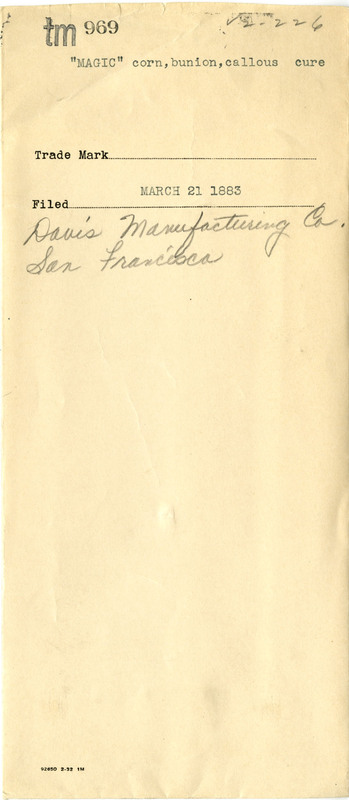 tm 969
v2-226
"MAGIC" corn,bunion,callous cure
Trade Mark
MARCH 21 1883
Filed
Davis Manufacturing Co.
San Francisco
92650 2-32 1M